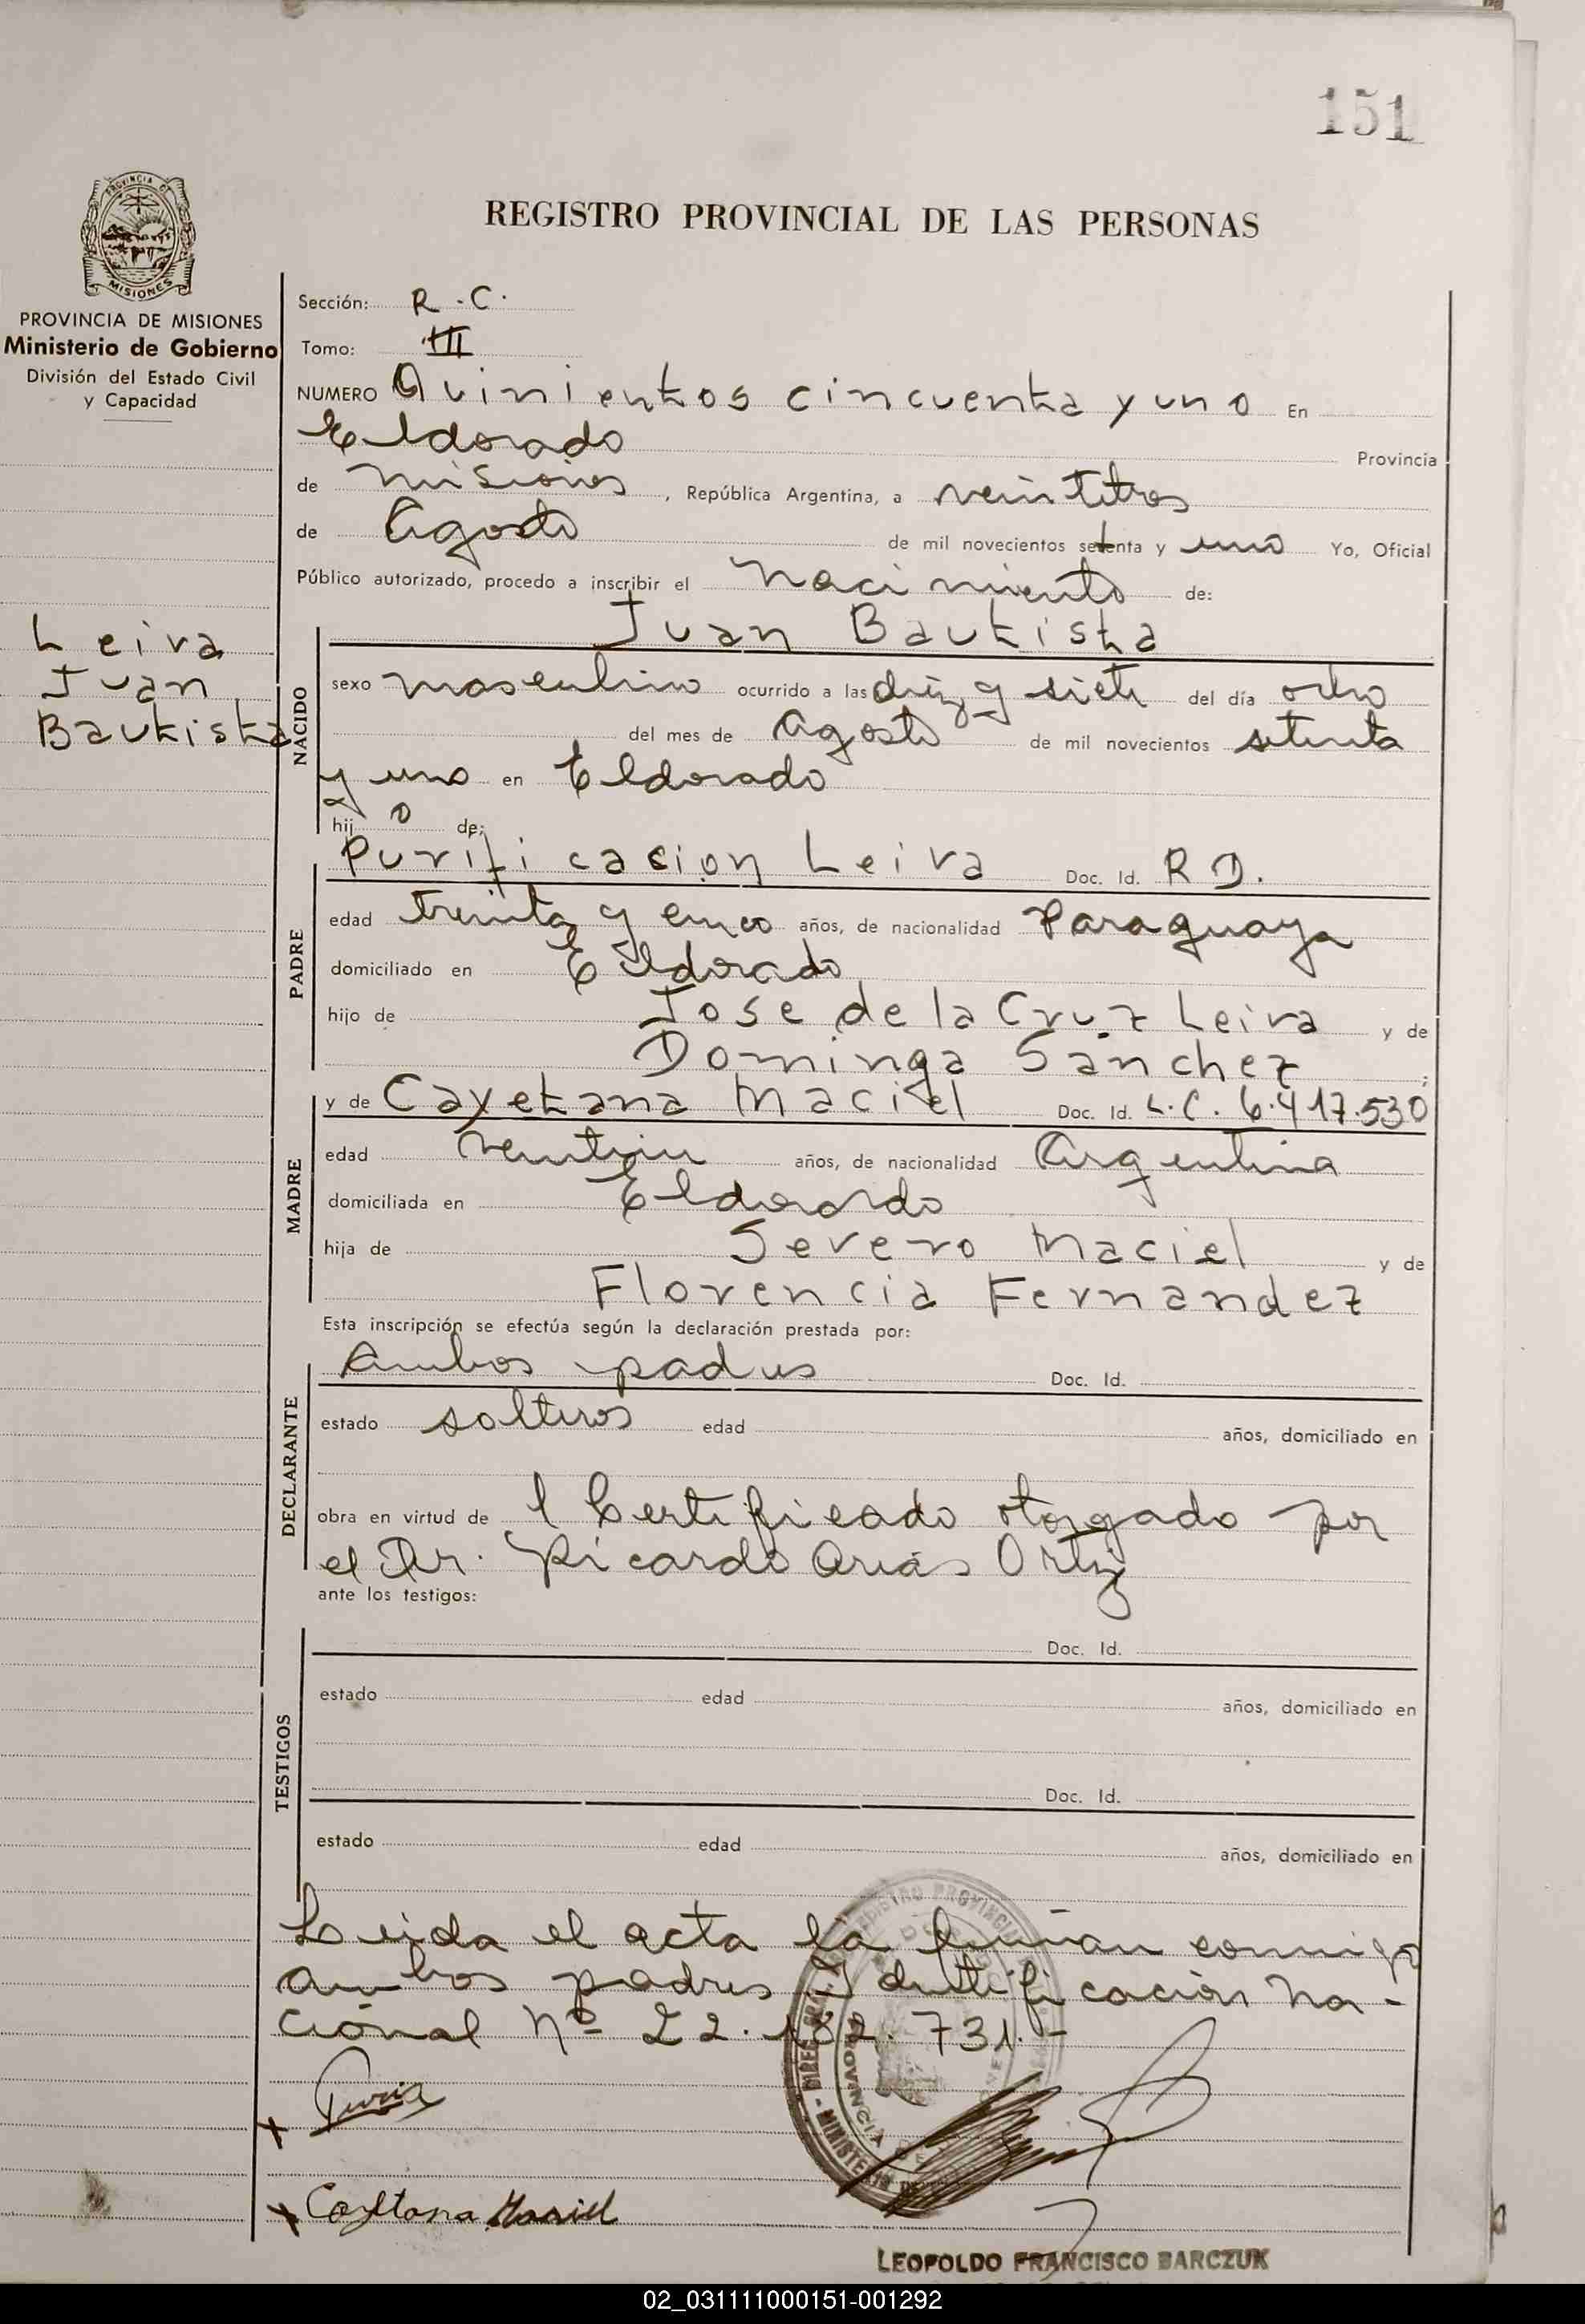 151
REGISTRO PROVINCIAL DE LAS PERSONAS
PROVINCIA DE MISIONES
Ministerio de Gobierno
División del Estado Civil
y Capacidad
Leiva
Juan
Bautista
Sección: R.C.
Tomo: III
NUMERO Quinientos cincuenta y uno En
Eldorado Provincia
de Misiones, República Argentina, a veintitres
de Agosto de mil novecientos setenta y uno Yo, Oficial
Público autorizado, procedo a inscribir el Nacimiento de:
Juan Bautista
NACIDO
sexo masculino ocurrido a las diez y siete del día ocho
del mes de Agosto de mil novecientos setenta
y uno en Eldorado
hijo de:
Purificasion Leiva Doc. Id. R D.
PADRE
edad treinta y cinco años, de nacionalidad Paraguaya
domiciliado en Eldorado
hijo de Jose de la Cruz Leiva y de
Dominga Sanchez;
y de Cayetana Maciel Doc. Id. L.C. 6.417.530
MADRE
edad años, de nacionalidad Argentina
domiciliada en Eldorado
hija de Severo Maciel y de
Florencia Fernandez
Esta inscripción se efectúa según la declaración prestada por:
Ambos padres Doc. Id.
DECLARANTE
estado solteros edad años, domiciliado en
obra en virtud de l Certificado otorgado por
el Dr. Ricardo Arias Ortiz
ante los testigos:
Doc. Id.
TESTIGOS
estado edad años, domiciliado en
Doc. Id.
estado edad años, domiciliado en
Leida el acta la firman conmigo
ambos padres Identificación Na-
cional Nº 22.182.731.-
Cayetana Maciel
LEOPOLDO FRANCISCO BARCZUK
02_031111000151-001292